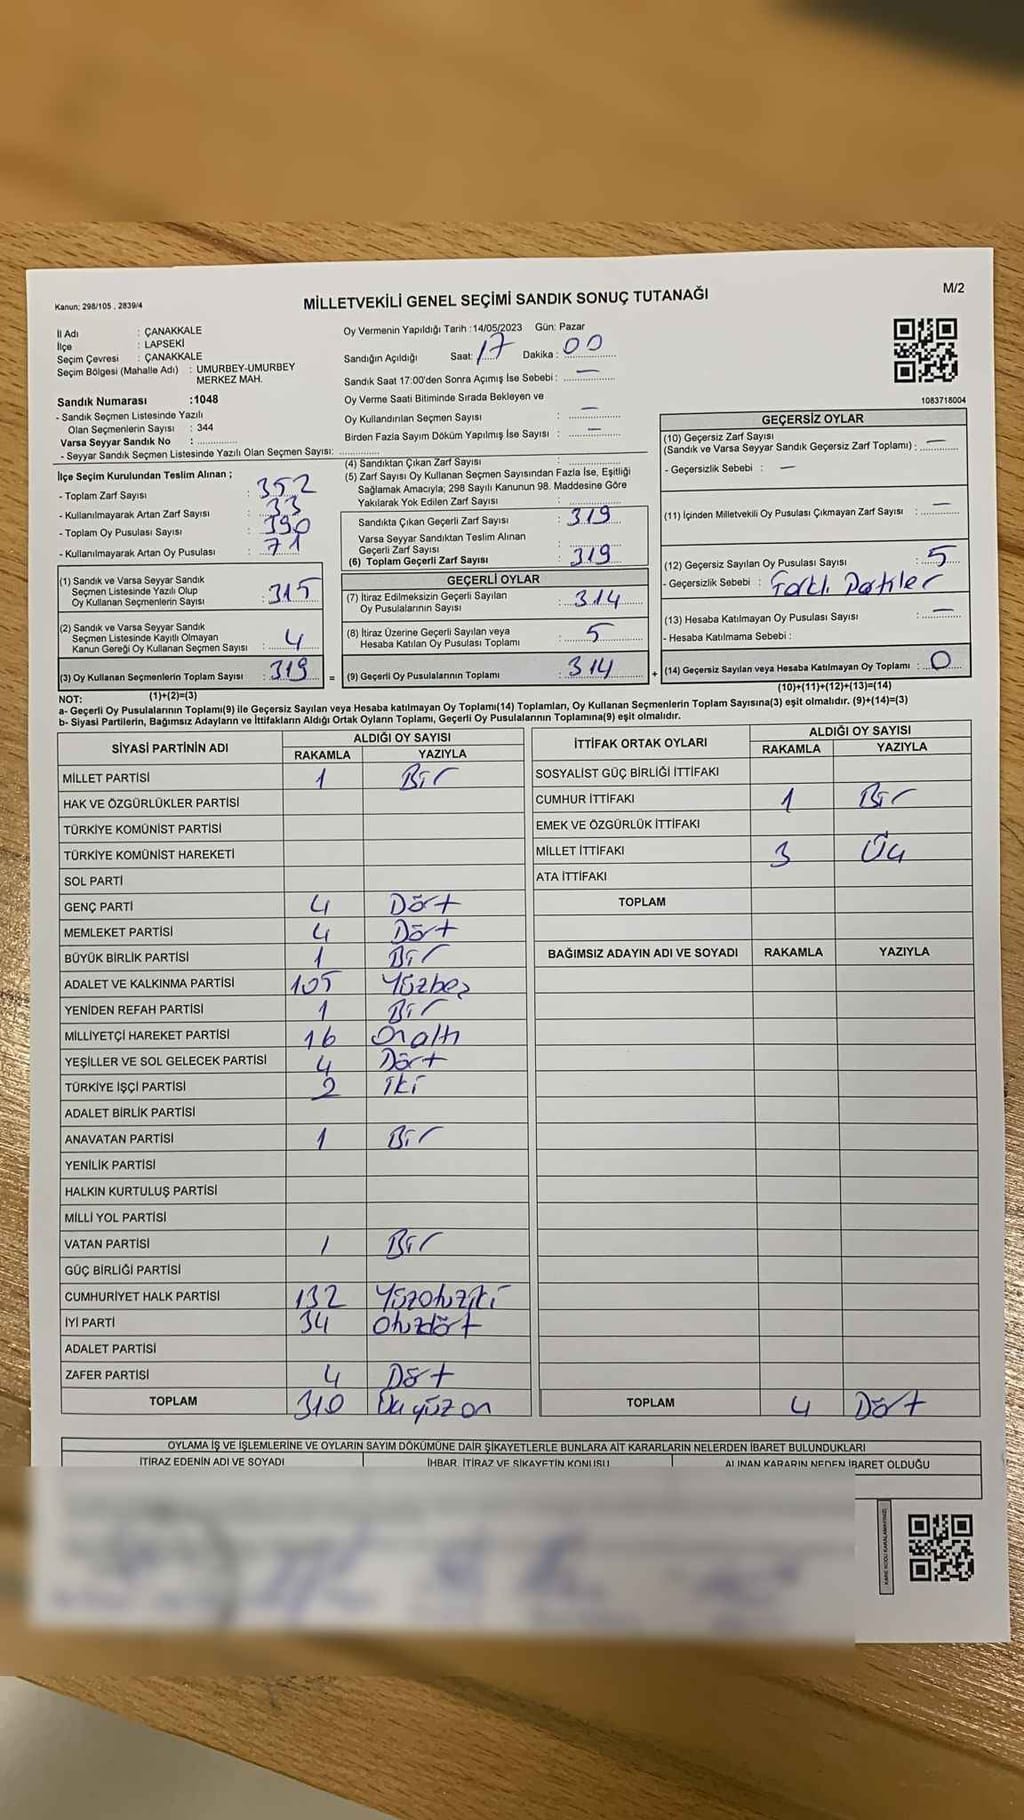 Kanun: 298/105 , 2839/4
MİLLETVEKİLİ GENEL SEÇİMİ SANDIK SONUÇ TUTANAĞI
M/2
İl Adı : ÇANAKKALE
İlçe : LAPSEKİ
Seçim Çevresi : ÇANAKKALE
Seçim Bölgesi (Mahalle Adı) : UMURBEY-UMURBEY
MERKEZ MAH.
Sandık Numarası :1048
- Sandık Seçmen Listesinde Yazılı
Olan Seçmenlerin Sayısı : 344
Varsa Seyyar Sandık No :
- Seyyar Sandık Seçmen Listesinde Yazılı Olan Seçmen Sayısı:
İlçe Seçim Kurulundan Teslim Alınan ;
- Toplam Zarf Sayısı : 352
- Kullanılmayarak Artan Zarf Sayısı : 33
- Toplam Oy Pusulası Sayısı : 390
- Kullanılmayarak Artan Oy Pusulası : 71
(1) Sandık ve Varsa Seyyar Sandık
Seçmen Listesinde Yazılı Olup
Oy Kullanan Seçmenlerin Sayısı : 315
(2) Sandık ve Varsa Seyyar Sandık
Seçmen Listesinde Kayıtlı Olmayan
Kanun Gereği Oy Kullanan Seçmen Sayısı : 4
(3) Oy Kullanan Seçmenlerin Toplam Sayısı : 319 =
(1)+(2)=(3)
Oy Vermenin Yapıldığı Tarih :14/05/2023 Gün: Pazar
Sandığın Açıldığı Saat: 17 Dakika : 00
Sandık Saat 17:00'den Sonra Açılmış İse Sebebi : —
Oy Verme Saati Bitiminde Sırada Bekleyen ve
Oy Kullandırılan Seçmen Sayısı : —
Birden Fazla Sayım Döküm Yapılmış İse Sayısı : —
(4) Sandıktan Çıkan Zarf Sayısı :
(5) Zarf Sayısı Oy Kullanan Seçmen Sayısından Fazla İse, Eşitliği
Sağlamak Amacıyla; 298 Sayılı Kanunun 98. Maddesine Göre
Yakılarak Yok Edilen Zarf Sayısı :
Sandıkta Çıkan Geçerli Zarf Sayısı : 319
Varsa Seyyar Sandıktan Teslim Alınan
Geçerli Zarf Sayısı :
(6) Toplam Geçerli Zarf Sayısı : 319
GEÇERLİ OYLAR
(7) İtiraz Edilmeksizin Geçerli Sayılan
Oy Pusulalarının Sayısı : 314
(8) İtiraz Üzerine Geçerli Sayılan veya
Hesaba Katılan Oy Pusulası Toplamı : 5
(9) Geçerli Oy Pusulalarının Toplamı : 314 +
1083718004
GEÇERSİZ OYLAR
(10) Geçersiz Zarf Sayısı
(Sandık ve Varsa Seyyar Sandık Geçersiz Zarf Toplamı) : —
- Geçersizlik Sebebi : —
(11) İçinden Milletvekili Oy Pusulası Çıkmayan Zarf Sayısı : —
(12) Geçersiz Sayılan Oy Pusulası Sayısı : 5
- Geçersizlik Sebebi : Farklı Partiler
(13) Hesaba Katılmayan Oy Pusulası Sayısı : —
- Hesaba Katılmama Sebebi :
(14) Geçersiz Sayılan veya Hesaba Katılmayan Oy Toplamı : 0
(10)+(11)+(12)+(13)=(14)
NOT:
a- Geçerli Oy Pusulalarının Toplamı(9) ile Geçersiz Sayılan veya Hesaba katılmayan Oy Toplamı(14) Toplamları, Oy Kullanan Seçmenlerin Toplam Sayısına(3) eşit olmalıdır. (9)+(14)=(3)
b- Siyasi Partilerin, Bağımsız Adayların ve İttifakların Aldığı Ortak Oyların Toplamı, Geçerli Oy Pusulalarının Toplamına(9) eşit olmalıdır.
SİYASİ PARTİNİN ADI ALDIĞI OY SAYISI
RAKAMLA YAZIYLA
MİLLET PARTİSİ 1 Bir
HAK VE ÖZGÜRLÜKLER PARTİSİ
TÜRKİYE KOMÜNİST PARTİSİ
TÜRKİYE KOMÜNİST HAREKETİ
SOL PARTİ
GENÇ PARTİ 4 Dört
MEMLEKET PARTİSİ 4 Dört
BÜYÜK BİRLİK PARTİSİ 1 Bir
ADALET VE KALKINMA PARTİSİ 105 Yüzbeş
YENİDEN REFAH PARTİSİ 1 Bir
MİLLİYETÇİ HAREKET PARTİSİ 16 Onaltı
YEŞİLLER VE SOL GELECEK PARTİSİ 4 Dört
TÜRKİYE İŞÇİ PARTİSİ 2 iki
ADALET BİRLİK PARTİSİ
ANAVATAN PARTİSİ 1 Bir
YENİLİK PARTİSİ
HALKIN KURTULUŞ PARTİSİ
MİLLİ YOL PARTİSİ
VATAN PARTİSİ 1 Bir
GÜÇ BİRLİĞİ PARTİSİ
CUMHURİYET HALK PARTİSİ 132 Yüzotuziki
İYİ PARTİ 34 Otuzdört
ADALET PARTİSİ
ZAFER PARTİSİ 4 Dört
TOPLAM 310 Üçyüzon
İTTİFAK ORTAK OYLARI ALDIĞI OY SAYISI
RAKAMLA YAZIYLA
SOSYALİST GÜÇ BİRLİĞİ İTTİFAKI
CUMHUR İTTİFAKI 1 Bir
EMEK VE ÖZGÜRLÜK İTTİFAKI
MİLLET İTTİFAKI 3 Üç
ATA İTTİFAKI
TOPLAM
BAĞIMSIZ ADAYIN ADI VE SOYADI RAKAMLA YAZIYLA
TOPLAM 4 Dört
OYLAMA İŞ VE İŞLEMLERİNE VE OYLARIN SAYIM DÖKÜMÜNE DAİR ŞİKAYETLERLE BUNLARA AİT KARARLARIN NELERDEN İBARET BULUNDUKLARI
İTİRAZ EDENİN ADI VE SOYADI İHBAR, İTİRAZ VE ŞİKAYETİN KONUSU ALINAN KARARIN NEDEN İBARET OLDUĞU
KARE KODU KARALAMAYINIZ!